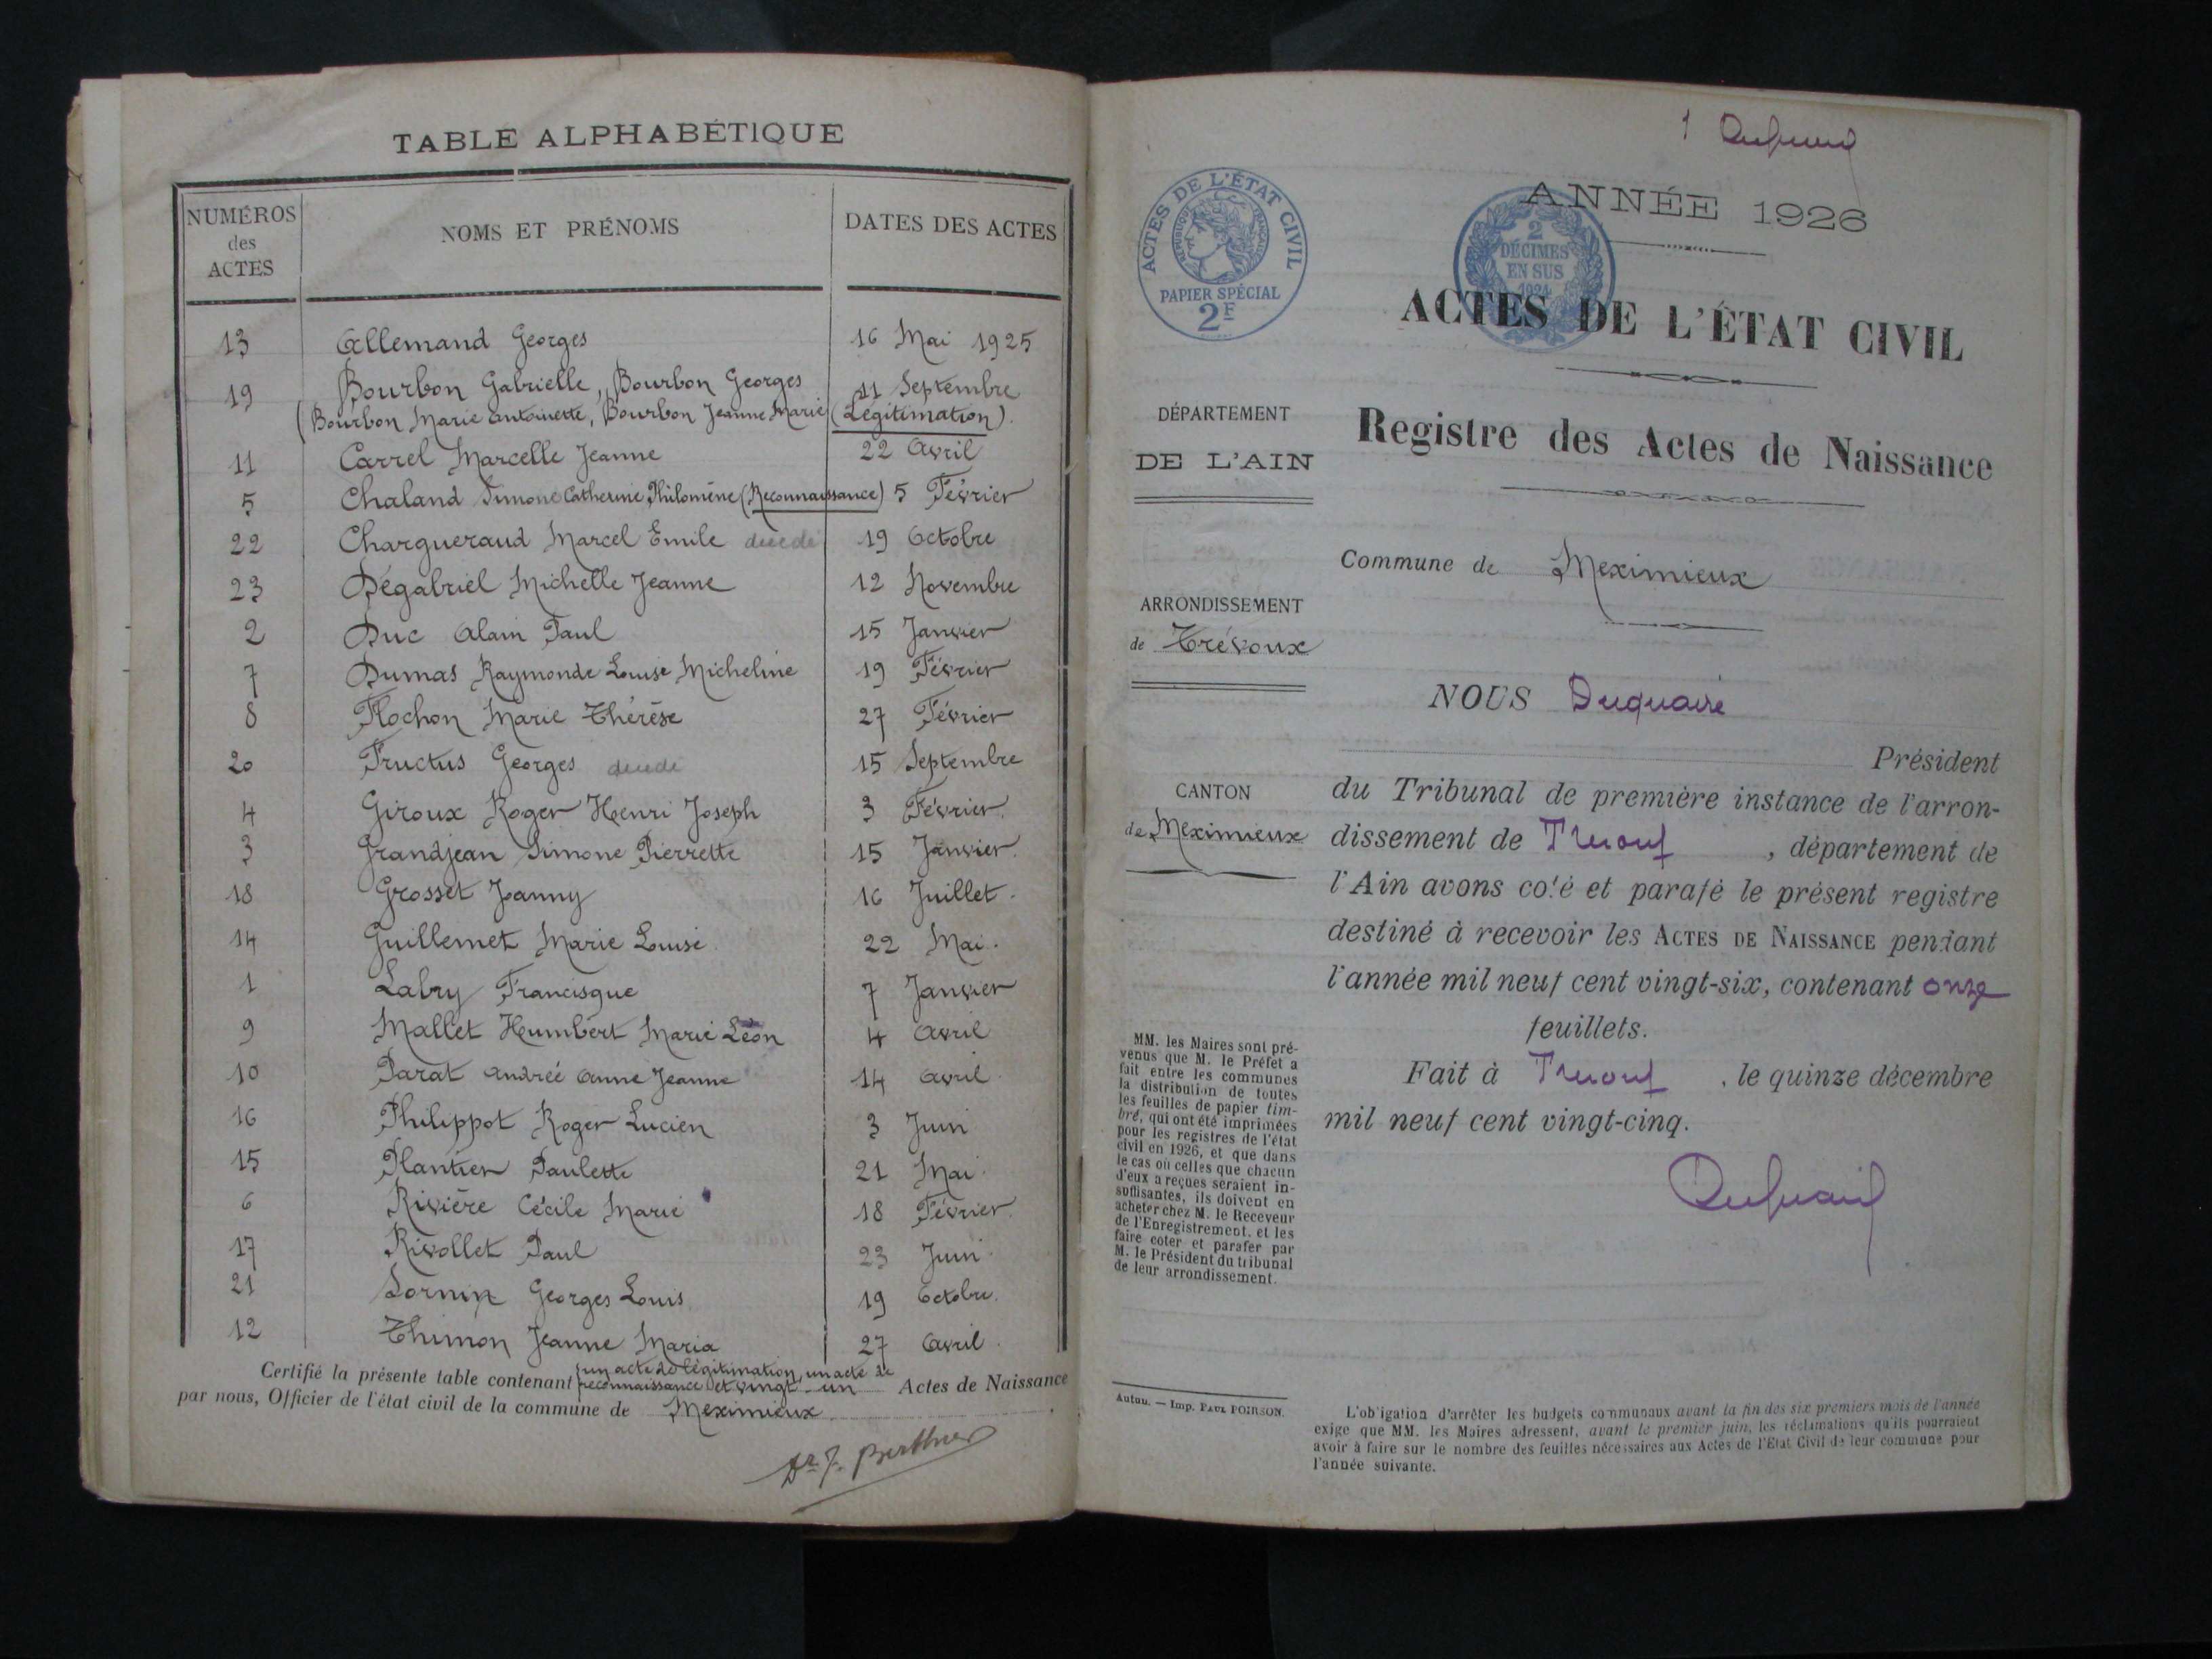 TABLE ALPHABÉTIQUE
NUMÉROS des ACTES NOMS ET PRÉNOMS DATES DES ACTES
13 Allemand Georges 16 Mai 1925
19 Bourbon Gabrielle, Bourbon Georges 11 Septembre
(Bourbon Marie Antoinette, Bourbon Jeanne Marie (Légitimation).
11 Carrel Marcelle Jeanne 22 Avril
5 Chaland Simone Catherine Philomène (Reconnaissance) 5 Février
22 Chargueraud Marcel Emile décédé 19 Octobre
23 Dégabriel Michelle Jeanne 12 Novembre
2 Duc Alain Paul 15 Janvier
7 Dumas Raymonde Louise Micheline 19 Février
8 Flochon Marie Thérèse 27 Février
20 Fructus Georges décédé 15 Septembre
4 Giroux Roger Henri Joseph 3 Février.
3 Grandjean Simone Pierrette 15 Janvier.
18 Grosset Joanny 16 Juillet.
14 Guillemet Marie Louise 22 Mai.
1 Labry Francisque 7 Janvier
9 Mallet Humbert Marie Léon 4 Avril
10 Parat Andrée Anne Jeanne 14 Avril.
16 Philippot Roger Lucien 3 Juin
15 Plantier Paulette 21 Mai.
6 Rivière Cécile Marie 18 Février.
17 Rivollet Paul 23 Juin.
21 Sornin Georges Louis 19 Octobre.
12 Thimon Jeanne Maria 27 Avril.
Certifié la présente table contenant un acte de légitimation, un acte de reconnaissance et vingt-un Actes de Naissance
par nous, Officier de l'état civil de la commune de Meximieux
Dr J. Berthier
1
ANNÉE 1926
ACTES DE L'ÉTAT CIVIL
RÉPUBLIQUE FRANÇAISE
PAPIER SPÉCIAL
2F
2
DÉCIMES
EN SUS
1924
ACTES DE L'ÉTAT CIVIL
Registre des Actes de Naissance
DÉPARTEMENT
DE L'AIN
Commune de Meximieux
ARRONDISSEMENT
de Trévoux
NOUS Duquaire
Président
CANTON
de Meximieux
du Tribunal de première instance de l'arron-
dissement de Trévoux, département de
l'Ain avons coté et parafé le présent registre
destiné à recevoir les ACTES DE NAISSANCE pendant
l'année mil neuf cent vingt-six, contenant onze
feuillets.
Fait à Trévoux, le quinze décembre
mil neuf cent vingt-cinq.
Duquaire
MM. les Maires sont pré-
venus que M. le Préfet a
fait entre les communes
la distribution de toutes
les feuilles de papier tim-
bré, qui ont été imprimées
pour les registres de l'état
civil en 1926, et que dans
le cas où celles que chacun
d'eux a reçues seraient in-
suffisantes, ils doivent en
acheter chez M. le Receveur
de l'Enregistrement, et les
faire coter et parafer par
M. le Président du tribunal
de leur arrondissement.
Autun. — Imp. PAUL POIRSON.
L'obligation d'arrêter les budgets communaux avant la fin des six premiers mois de l'année
exige que MM. les Maires adressent, avant le premier juin, les réclamations qu'ils pourraient
avoir à faire sur le nombre des feuilles nécessaires aux Actes de l'État Civil de leur commune pour
l'année suivante.